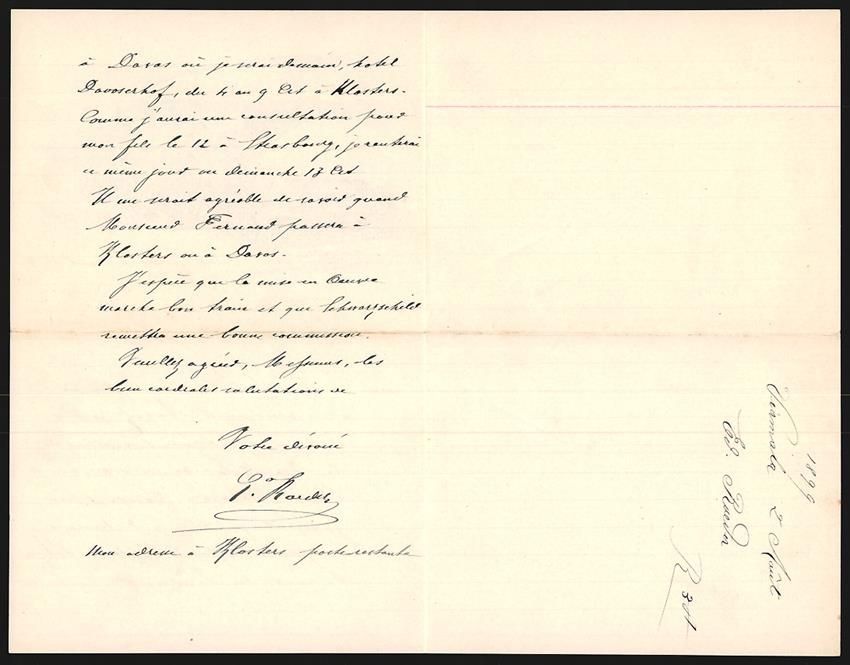 à Davos où je serai demain, hotel
Davoserhof, du 4 au 9 Ct à Klosters.
Comme j'aurai une consultation pour
mon fils le 12 à Strasbourg, je rentrerai
ce même jour ou dimanche 13 Ct
Il me serait agréable de savoir quand
Monsieur Fernand passera à
Klosters ou à Davos.
J'espère que la mise en œuvre
marche bon train et que Schwarzschild
remettra une bonne commission.
Veuillez agréer, Messieurs, les
bien cordiales salutations de
Votre dévoué
Mon adresse à Klosters poste restante
1899
2 Août
Ed.
R 3 st